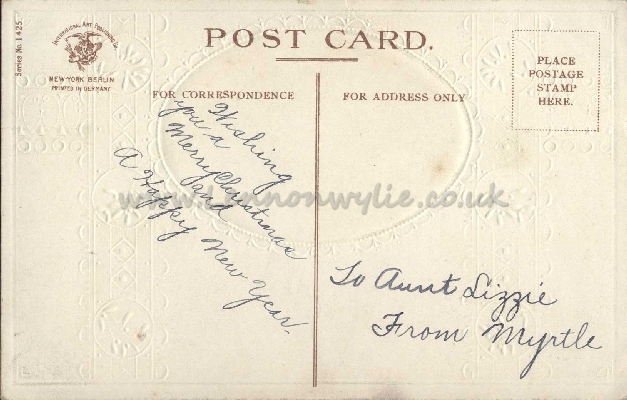 Series No. 1425
INTERNATIONAL ART PUBLISHING Co.
NEW-YORK BERLIN
PRINTED IN GERMANY
POST CARD.
PLACE
POSTAGE
STAMP
HERE.
FOR CORRESPONDENCE
FOR ADDRESS ONLY
Wishing
you a
Merry Christmas
and
A Happy New Year.
www.Lennonwylie.co.uk
To Aunt Lizzie
From Myrtle